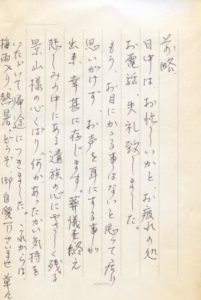 前略
日中は お忙しいかと、お疲れの処
お電話、失礼致しました。
もう、お目にかかる事はないと思って居り
思いがけず、お声を耳にする事が
出来、幸甚に存じます。葬儀を終え
悲しみの中にある、遺族の心にやさしく残る
景山様の心くばり 何かあったかい気持を
いただいて帰途につきました。これからは
梅雨入り 熱暑、どうぞ御自愛下さいませ 草々